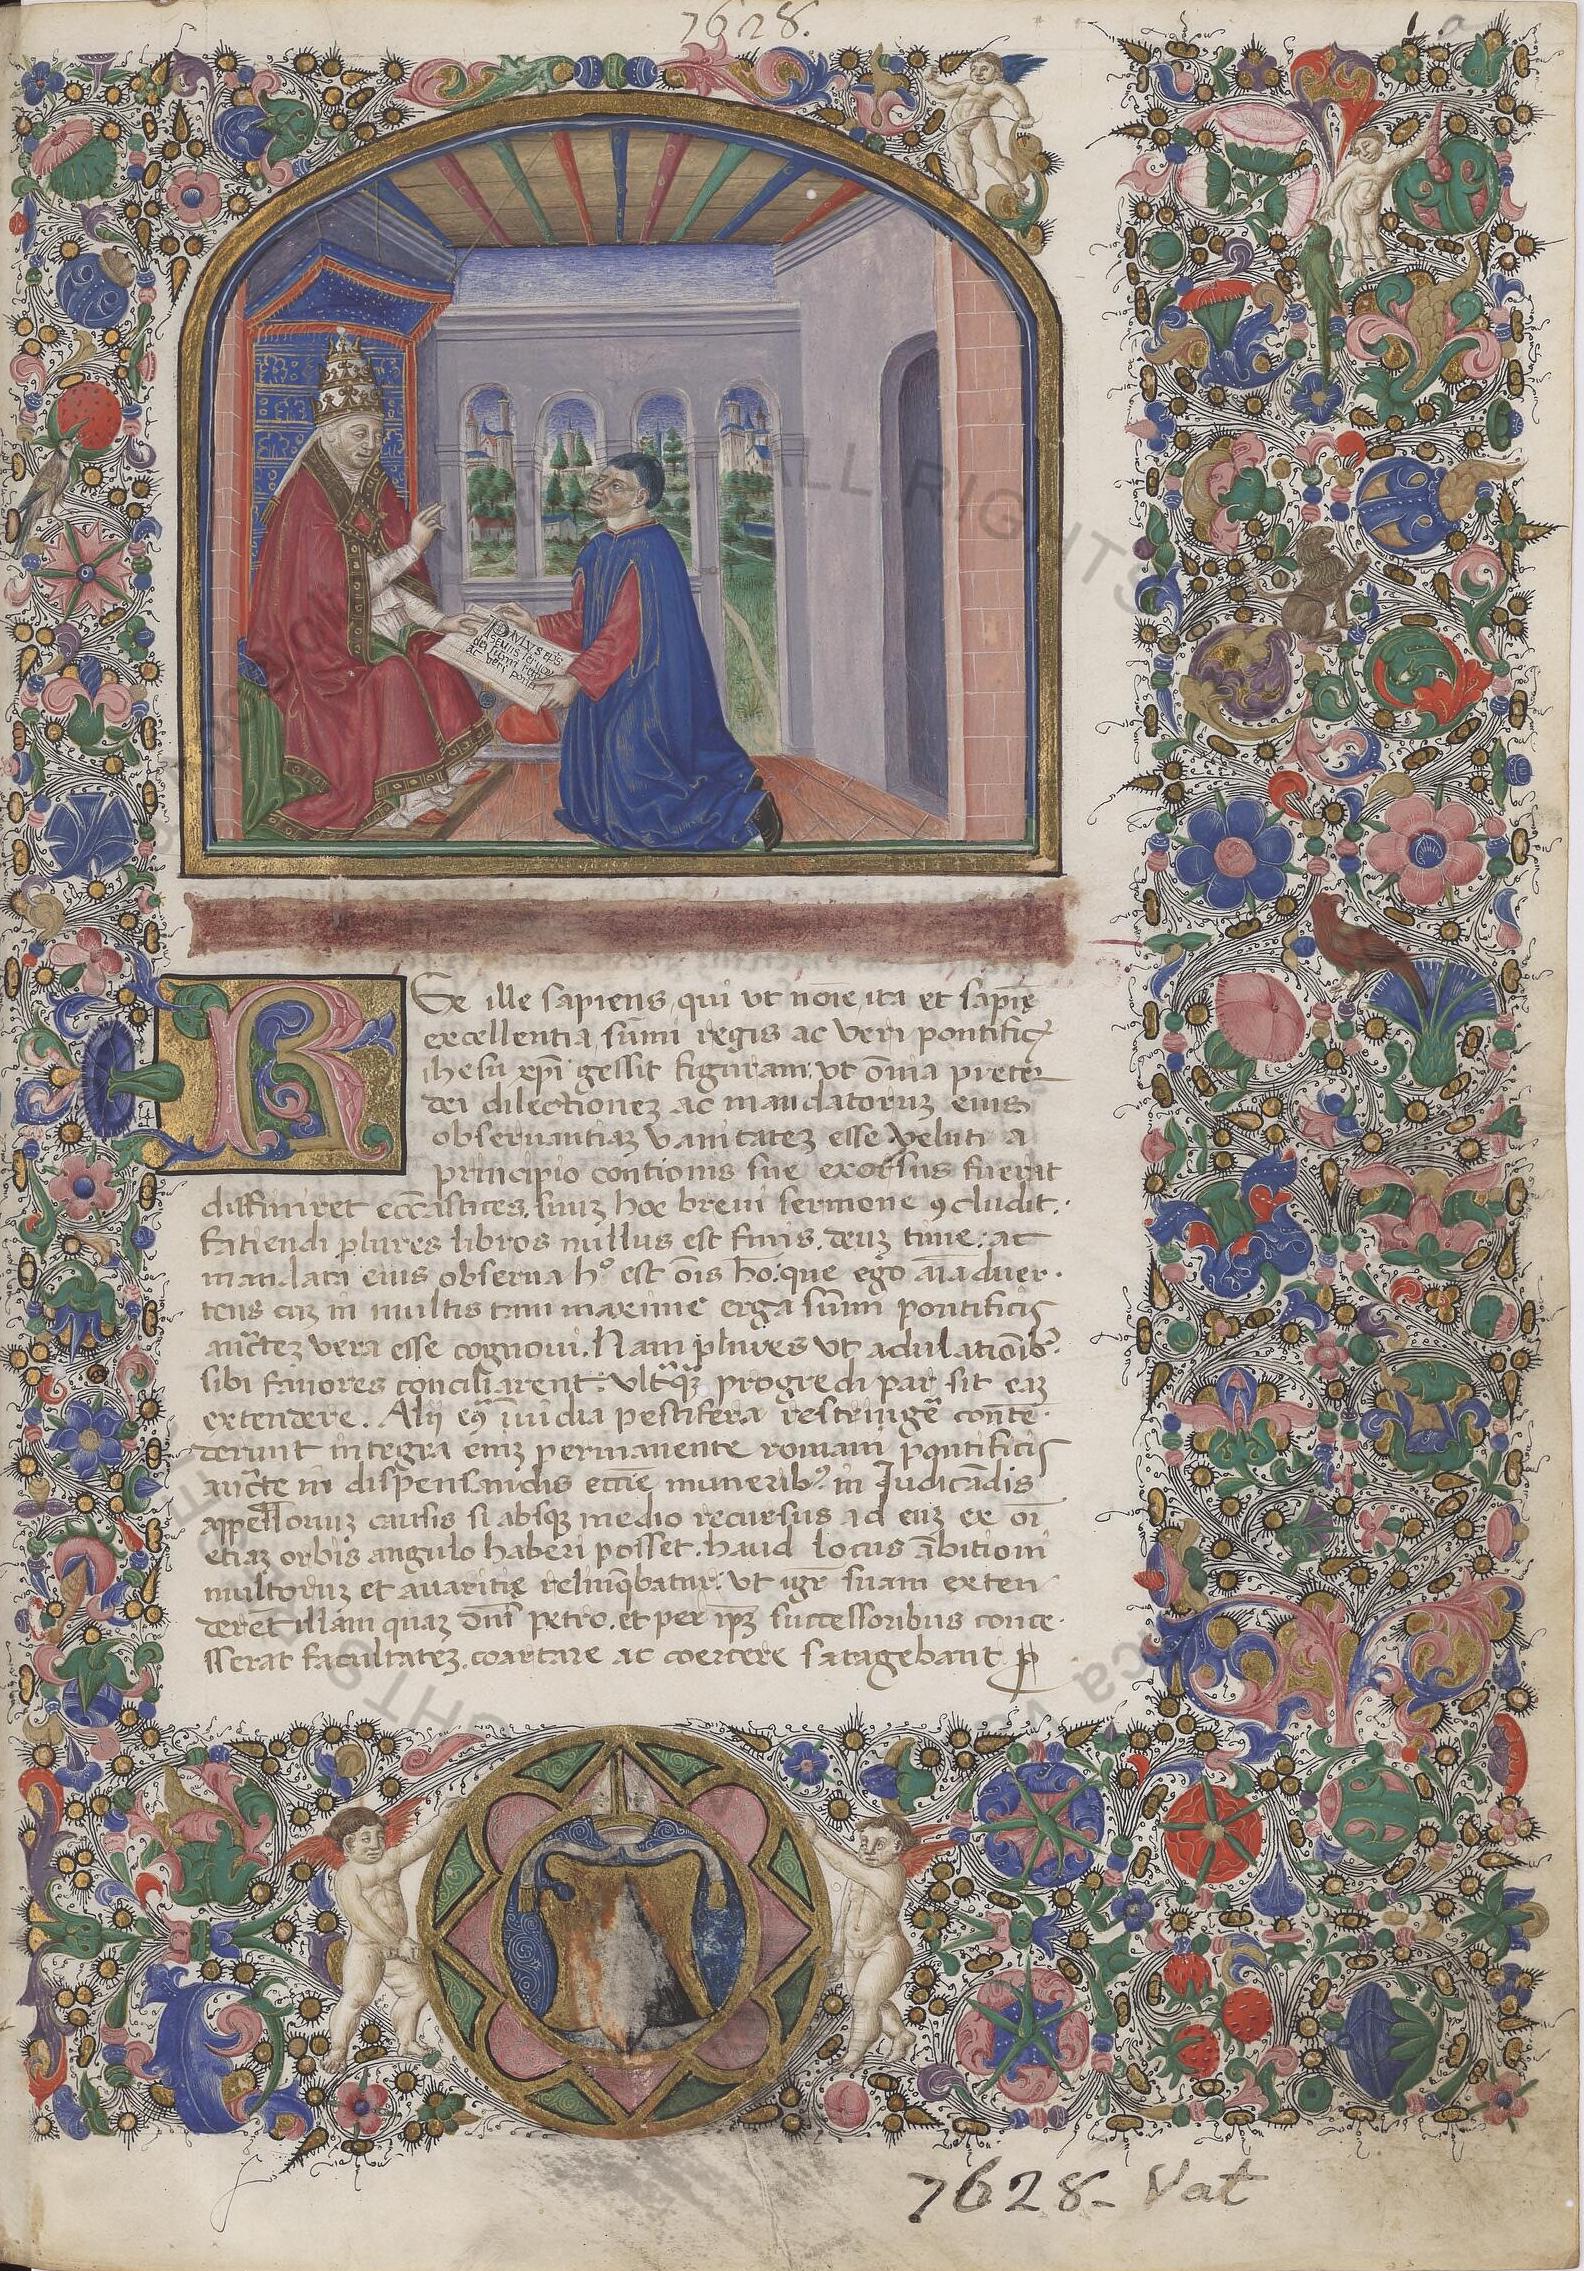 7628.
1 a
PAVLVS eps
servus servor
dei summi regis
ac veri pontifi
REx ille sapiens, qui ut noīe ita et sapīe
excellentia, sūmi regis ac veri pontific̨
ihesu xp̄i gessit figuram, ut ōm̄ia preter
dei dilectionez ac mandatoruz eius
observantiaz vanitatez esse veluti a
principio contionis sue exorsus fuerat
diffiniret eccl̄iastices. suuz hoc brevi sermone ꝯcludit.
fatiendi plures libros nullus est finis. deuz time: ac
mandata eius observa h° est ōis hō: que ego aīadver-
tens cuz in multis tum maxime erga sūmi pontificis
auctez vera esse cognovi. Nam plures ut adulatiōib⁹
sibi favores conciliarent: ultraq̄ꝫ progredi par sit eaz
extendere. Alij eꝯ īvidia pestifera restringē conte-
derunt integra enīz permanente romani pontificis
aucte in dispensandis eccl̄ie munerib⁹. in Judicādis
appell̄oruz causis si absqꝫ medio recursus ad euz ex oī
etiaz orbis angulo haberi posset. haud locus ābitioni
multoruz et avaritię relinq̄batur. ut igr̄ suam exten-
derēt illam quaz dn̄s petro. et per ipz successoribus conce-
sserat facultatez, coartare ac coercere satagebant ꝑ
7628- Vat